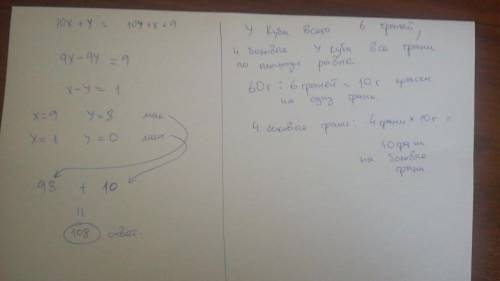 10x + y = 10y + x + 9
9x - 9y = 9
x - y = 1
x = 9 y = 8 мак
x = 1 y = 0 мин
98 + 10
=
108 ответ.
У куба всего 6 граней,
4 боковые У куба все грани
по площади равны
60 г : 6 граней = 10 г краски
на одну грань.
4 боковые грани: 4 грани × 10 г =
40
на боковые
грани.